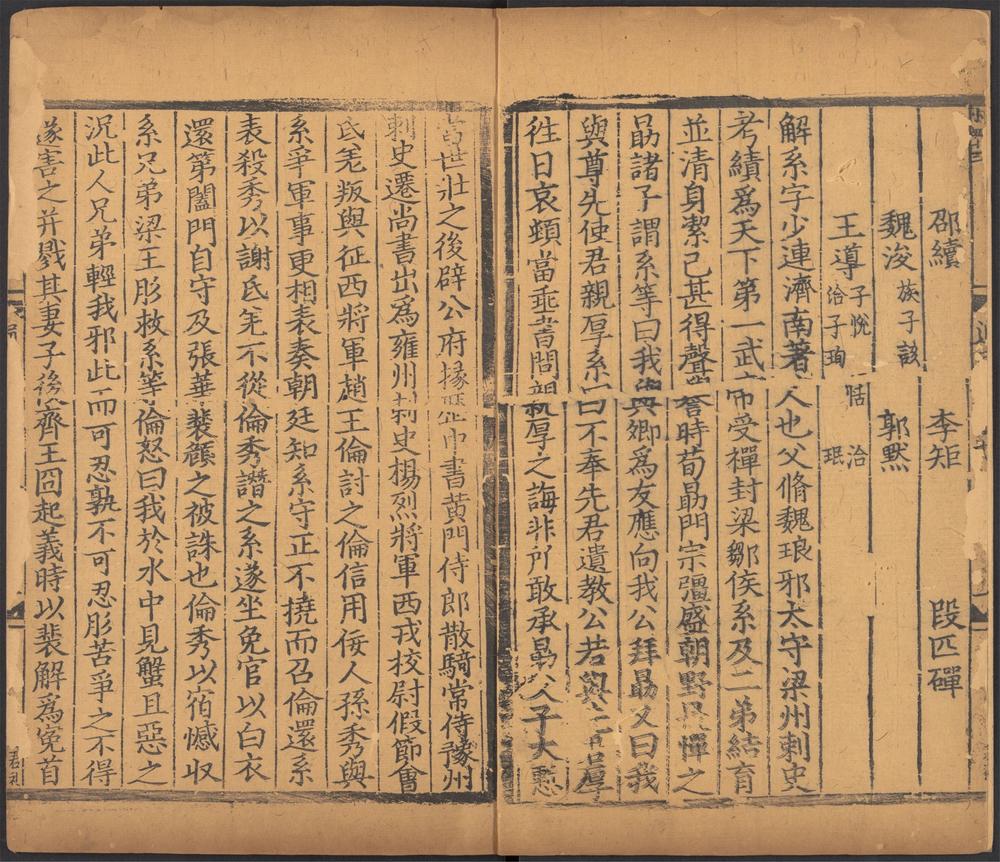 邵續 李矩 段匹磾
魏浚 族子該 郭默
王導 子悅 恬 洽 洽子珣 珉
解系字少連濟南著人也父脩魏琅邪太守梁州刺史
考績爲天下第一武帝受禪封梁鄒侯系及二弟結育
並清身絜己甚得聲譽時荀勗門宗彊盛朝野畏憚之
勗諸子謂系等曰我與卿爲友應向我公拜勗又曰我
與尊先使君親厚系曰不奉先君遺教公若與先君厚
徃日哀頓當垂書問親厚之誨非所敢承勗父子大慙
當世壯之後辟公府掾歷中書黃門侍郎散騎常侍豫州
刺史遷尚書出爲雍州刺史揚烈將軍西戎校尉假節會
氐羌叛與征西將軍趙王倫討之倫信用佞人孫秀與
系爭軍事更相表奏朝廷知系守正不撓而召倫還系
表殺秀以謝氐羌不從倫秀譖之系遂坐免官以白衣
還第闔門自守及張華裴頠之被誅也倫秀以宿憾收
系兄弟梁王肜救系等倫怒曰我於水中見蟹且惡之
況此人兄弟輕我邪此而可忍孰不可忍肜苦爭之不得
遂害之并戮其妻子後齊王冏起義時以裴解爲寃首